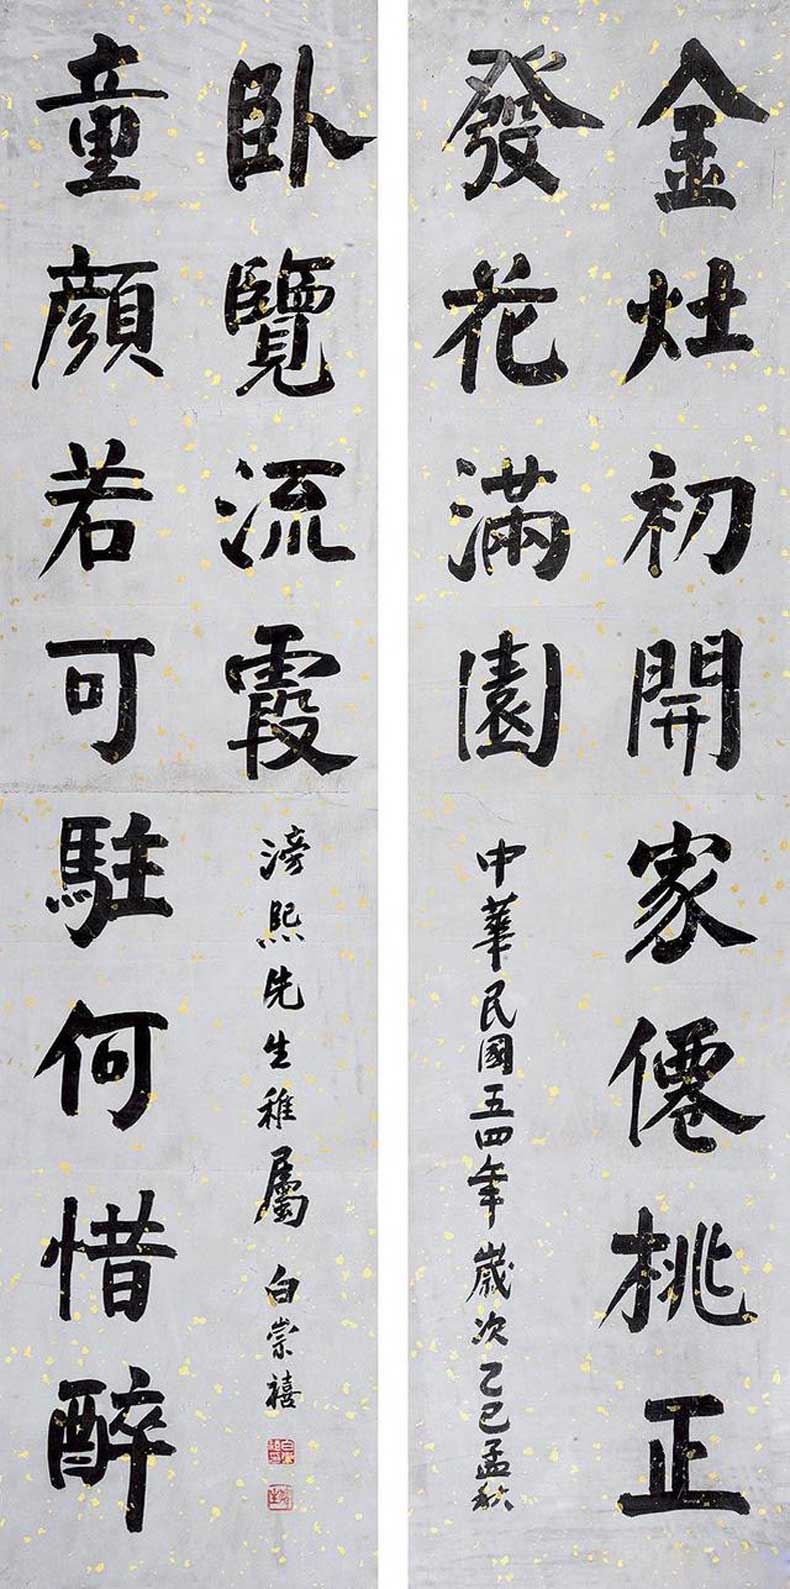 金灶初開家僊桃正
發花滿園
中華民國五四年歲次乙巳孟秋
童顏若可駐何惜醉
臥覽流霞
滂熙先生稚屬 白崇禧